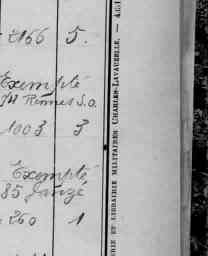 2166 5.
Exempté
/4 Rennes S.O.
1003 3
Exempté
85 Janzé
260 1
RIE ET LIBRAIRIE MILITAIRES CHARLES-LAVAUZELLE. —